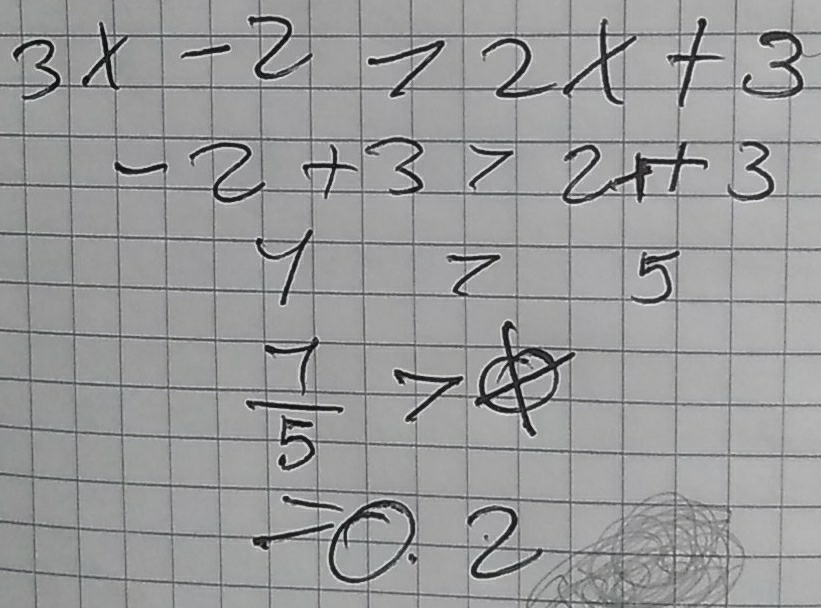 3x - 2 > 2x + 3
-2 + 3 > 2 + 3
1 > 5
1/5 >
= 0.2